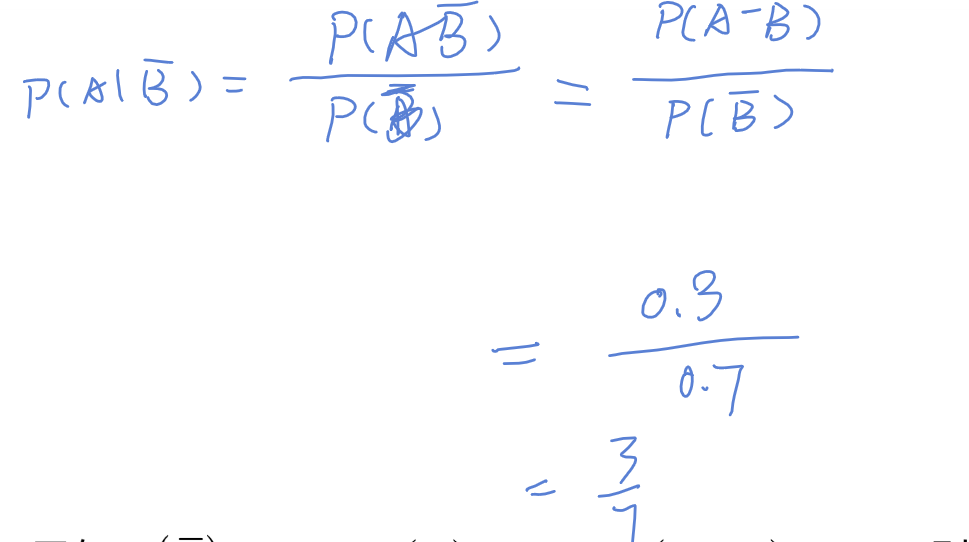 P(A|B̅) = P(AB̅) / P(B̅) = P(A-B) / P(B̅)
= 0.3 / 0.7
= 3 / 7